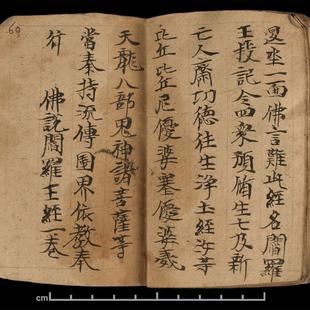 坐一面佛言難此經名閻羅
王投記令四眾預脩生七及新
亡人齋功德往生淨土經汝等
比丘比丘尼優婆塞優婆義
天龍八部鬼神諸菩薩等
當奉持流傳國界依教奉
行 佛說閻羅王經一卷
69
cm